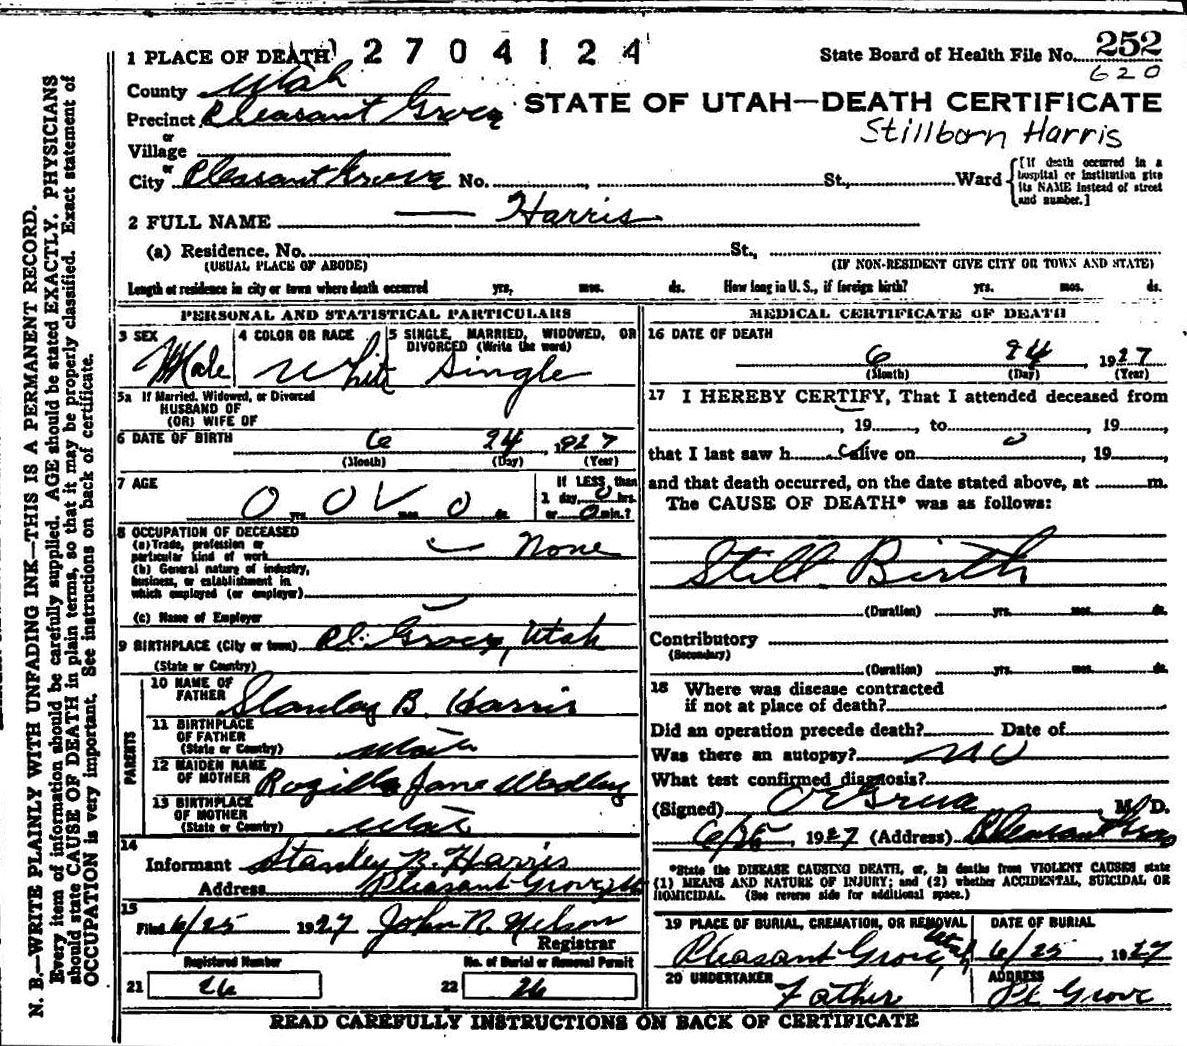 1 PLACE OF DEATH 2704124 State Board of Health File No. 252
620
County Utah
Precinct Pleasant Grove STATE OF UTAH—DEATH CERTIFICATE
or Stillborn Harris
Village
or
City Pleasant Grove No. , St., Ward [If death occurred in a hospital or institution give its NAME instead of street and number.]
2 FULL NAME — Harris
(a) Residence. No. St.,
(USUAL PLACE OF ABODE) (IF NON-RESIDENT GIVE CITY OR TOWN AND STATE)
Length of residence in city or town where death occurred yrs. mos. ds. How long in U. S., if foreign birth? yrs. mos. ds.
PERSONAL AND STATISTICAL PARTICULARS
3 SEX Male 4 COLOR OR RACE White 5 SINGLE, MARRIED, WIDOWED, OR DIVORCED (Write the word) Single
5a If Married, Widowed, or Divorced
HUSBAND OF
(OR) WIFE OF
6 DATE OF BIRTH 6 24 , 1927
(Month) (Day) (Year)
7 AGE 0 yrs. 0 mos. 0 ds. If LESS than 1 day, 0 hrs. or 0 min.?
8 OCCUPATION OF DECEASED
(a) Trade, profession or
particular kind of work None
(b) General nature of industry,
business, or establishment in
which employed (or employer)
(c) Name of Employer
9 BIRTHPLACE (City or town) Pl. Grove, Utah
(State or Country)
PARENTS
10 NAME OF FATHER Stanley B. Harris
11 BIRTHPLACE OF FATHER (State or Country) Utah
12 MAIDEN NAME OF MOTHER Rozilla Jane
13 BIRTHPLACE OF MOTHER (State or Country) Utah
14
Informant Stanley B. Harris
Address Pleasant Grove, Ut
15
Filed 6/25 1927 John R. Nelson
Registrar
Registered Number No. of Burial or Removal Permit
21 26 22 26
MEDICAL CERTIFICATE OF DEATH
16 DATE OF DEATH
6 24 , 1927
(Month) (Day) (Year)
17 I HEREBY CERTIFY, That I attended deceased from
, 19 , to , 19 ,
that I last saw h alive on , 19 ,
and that death occurred, on the date stated above, at m.
The CAUSE OF DEATH* was as follows:
Still Birth
(Duration) yrs. mos. ds.
Contributory
(Secondary)
(Duration) yrs. mos. ds.
18 Where was disease contracted
if not at place of death?
Did an operation precede death? Date of
Was there an autopsy? No
What test confirmed diagnosis?
(Signed) O E Grua M. D.
6/25, 1927 (Address) Pleasant Grove
*State the DISEASE CAUSING DEATH, or, in deaths from VIOLENT CAUSES state
(1) MEANS AND NATURE OF INJURY; and (2) whether ACCIDENTAL, SUICIDAL OR
HOMICIDAL. (See reverse side for additional space.)
19 PLACE OF BURIAL, CREMATION, OR REMOVAL DATE OF BURIAL
Pleasant Grove, Utah 6/25, 1927
20 UNDERTAKER ADDRESS
Father Pl Grove
READ CAREFULLY INSTRUCTIONS ON BACK OF CERTIFICATE
N. B.—WRITE PLAINLY WITH UNFADING INK—THIS IS A PERMANENT RECORD.
Every item of information should be carefully supplied. AGE should be stated EXACTLY. PHYSICIANS
should state CAUSE OF DEATH in plain terms, so that it may be properly classified. Exact statement of
OCCUPATION is very important. See instructions on back of certificate.